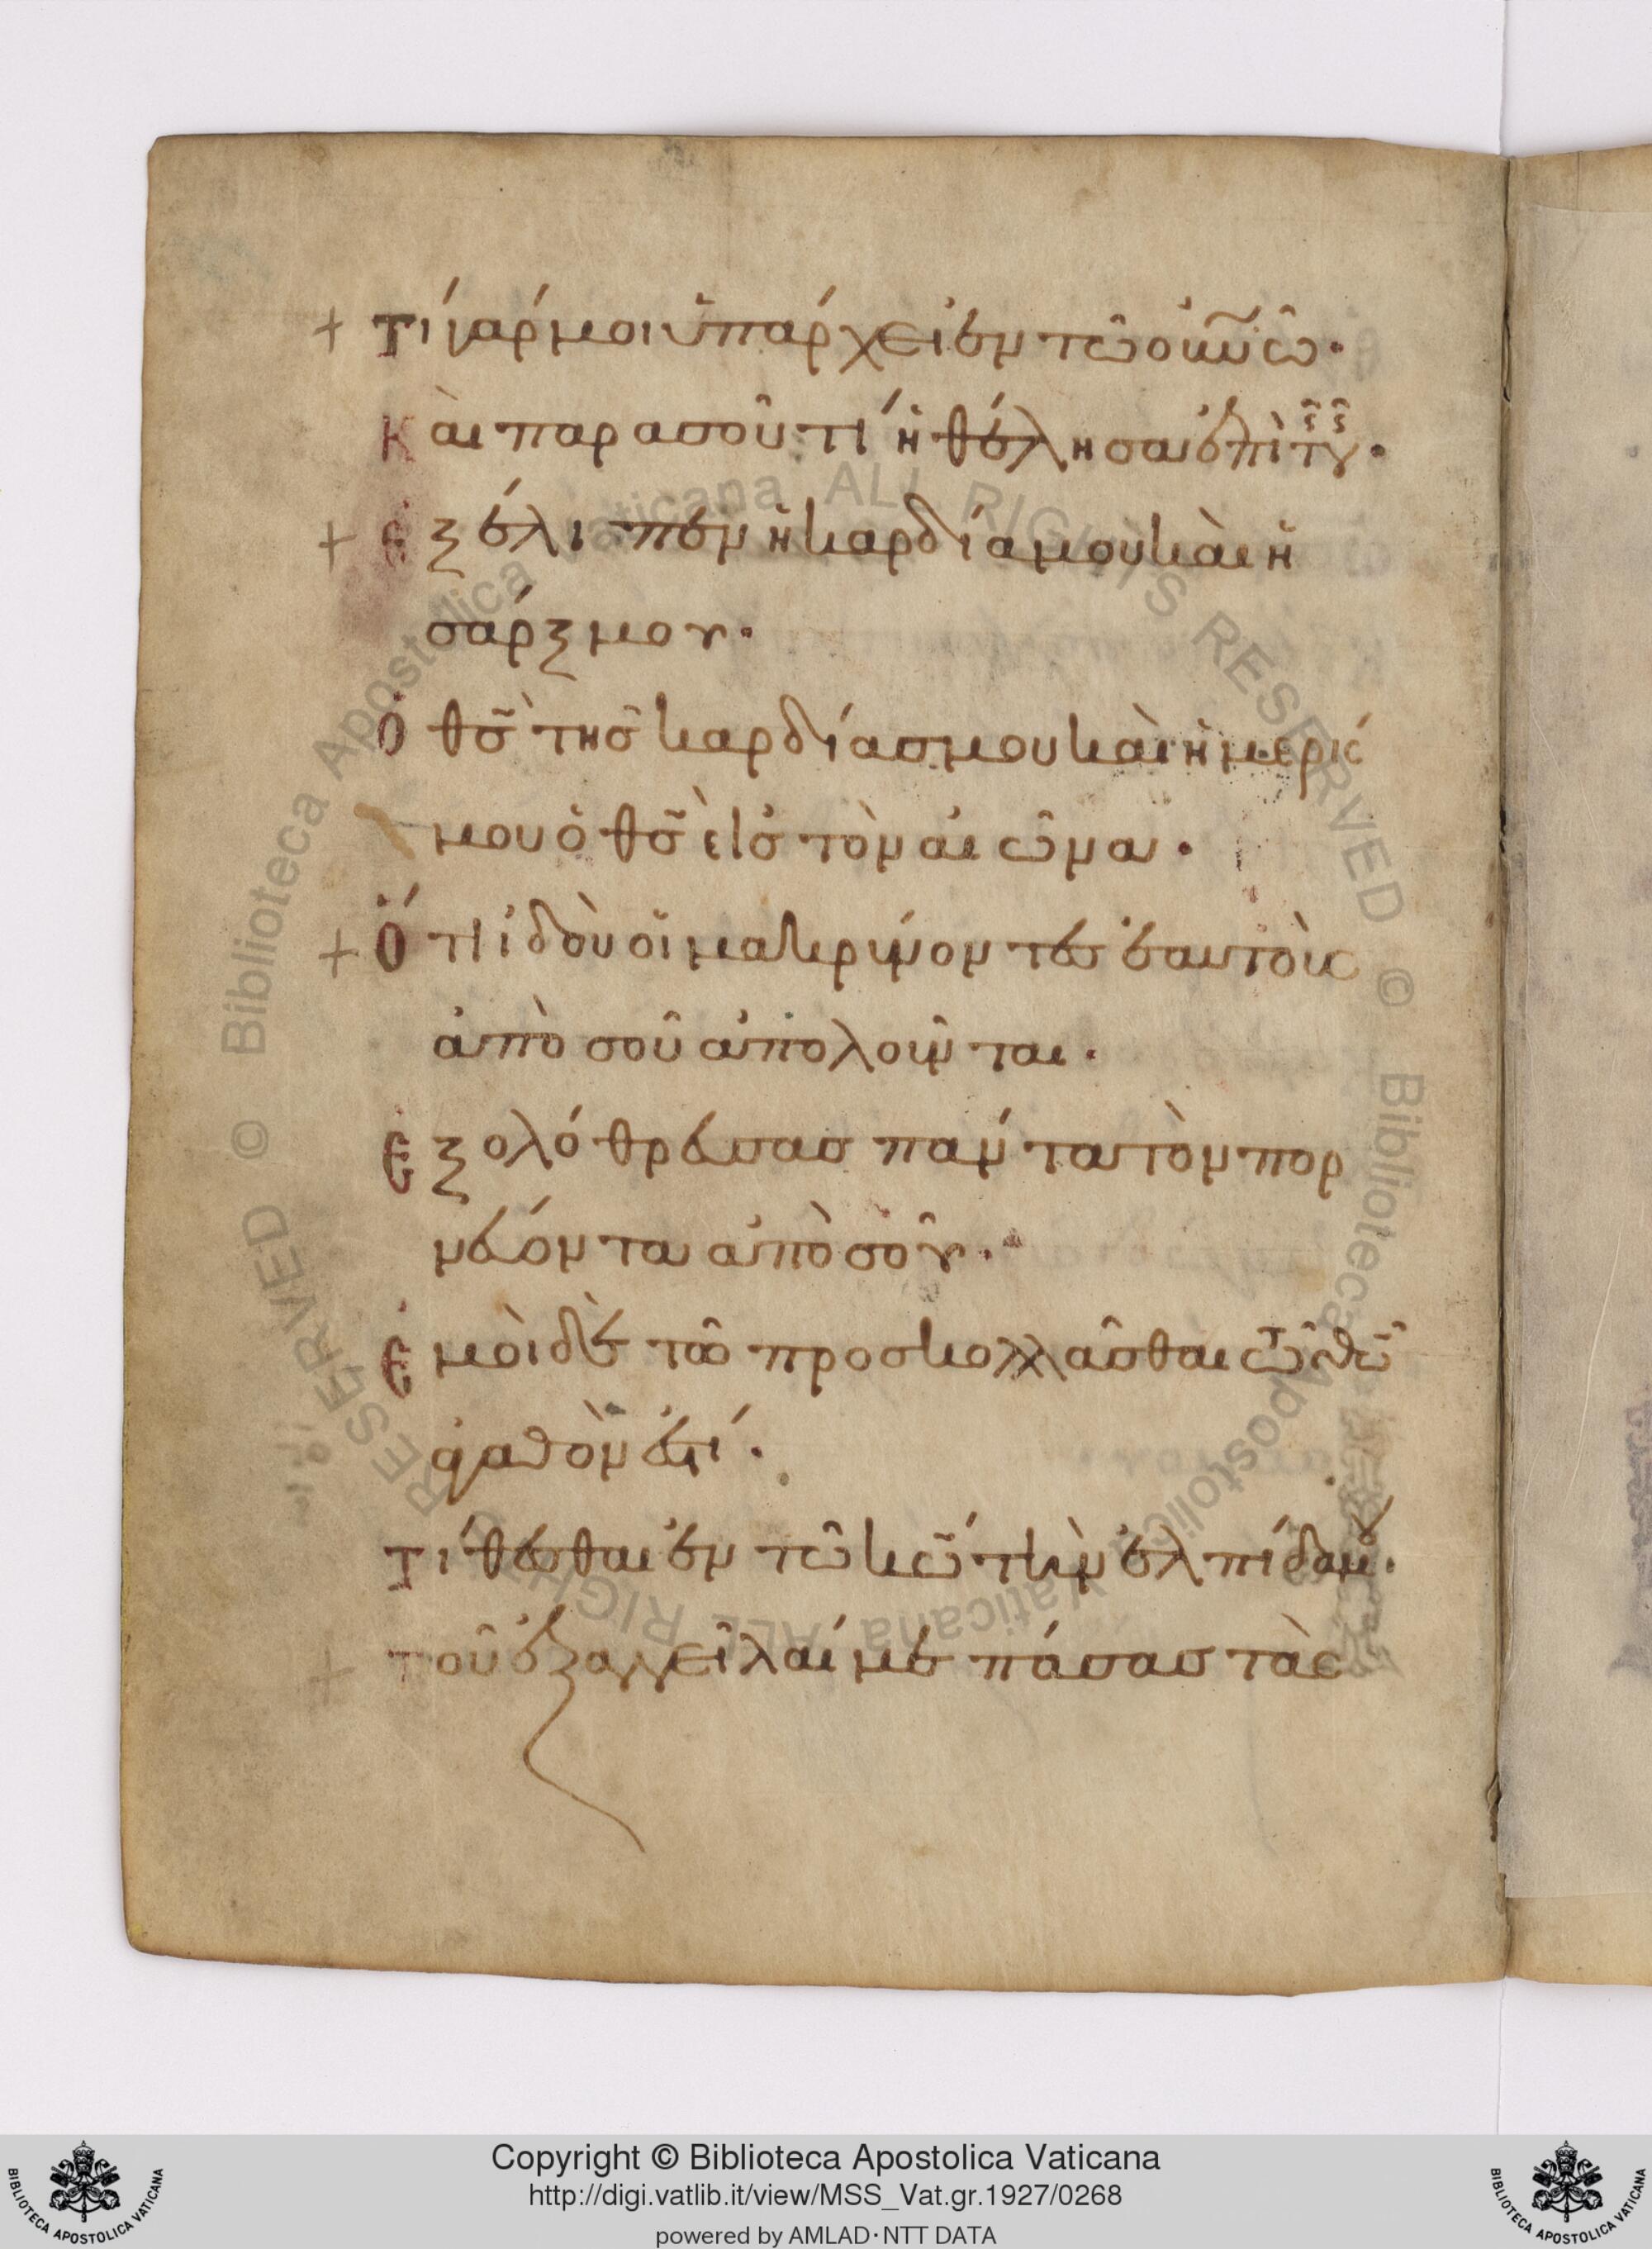 + τί γάρ μοι ὑπάρχει ἐν τῶ οὐνῶ·
Κὰι παρὰ σοῦ τί ἠθέλησα ἐπὶ τῆς γῆς·
+ Ἐξέλιπεν ἡ καρδία μοὺ κὰι ἡ
σάρξ μου·
Ὁ θς̃ τῆς καρδίας μου κὰι ἡ μερίς
μου ὁ θς̃ εἰς τὸν αἰῶνα·
+ Ὅτι ἰδοὺ οἱ μακρύνοντες ἑαυτοὺς
ἀπὸ σοῦ ἀπολοῦνται·
Ἐξολόθρευσας πάντα τὸν πορ
νεύοντα ἀπὸ σοῦ·
Ἐμοὶ δὲ τὸ προσκολλᾶσθαι τῶ θῶ
ἀγαθὸν ἐστί·
τίθεσθαι ἐν τῶ κῶ τὴν ἐλπίδα μου·
+ τοῦ ἐξαγγεῖλαί με πάσας τὰς
Copyright © Biblioteca Apostolica Vaticana
http://digi.vatlib.it/view/MSS_Vat.gr.1927/0268
powered by AMLAD·NTT DATA
BIBLIOTECA APOSTOLICA VATICANA
BIBLIOTECA APOSTOLICA VATICANA
© Biblioteca Apostolica Vaticana ALL RIGHTS RESERVED
© Biblioteca Apostolica Vaticana ALL RIGHTS RESERVED